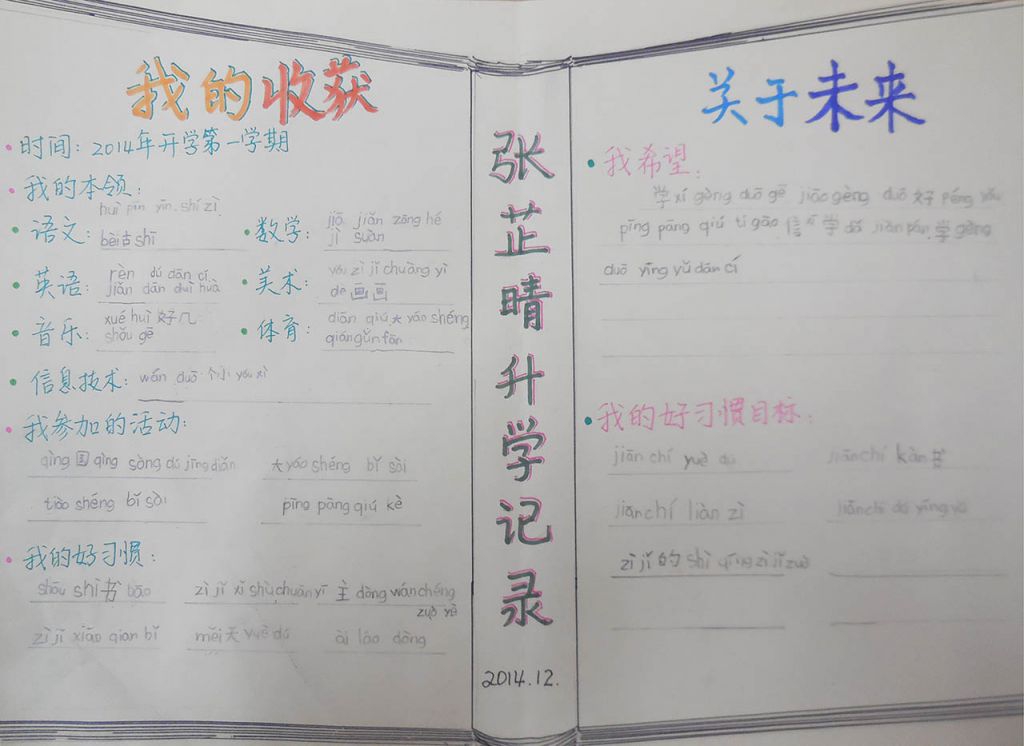 我的收获
时间：2014年开学第一学期
我的本领：
语文：huì pīn yīn.shí zì
bèi古shī
数学：jiā jiǎn zōng hé
jì suàn
英语：rèn dú dān cí
jiǎn dān duì huà
美术：yòu zì jǐ chuàng yì
de 画画
音乐：xué huì 好几
shǒu gē
体育：diān qiú 大 yáo shéng
qiángǔnfān
信息技术：wán duō 个小 yóu xì
我参加的活动：
qìng 国 qìng sòng dú jīng diǎn
大 yáo shéng bǐ sài
tiào shéng bǐ sài
pīng pāng qiú kè
我的好习惯：
shōu shi 书 bāo
zì jǐ xǐ shù chuān yī
主 dòng wánchéng
zuò yè
zì jǐ xiāo qiān bǐ
měi 天 yuè dú
ài láo dòng
张芷晴升学记录
2014.12.
关于未来
我希望：
学 xí gèng duō gē jiāo gèng duō 好 péng yǒu
pīng pāng qiú tí gāo dǎ jiàn pán 学 gèng
duō yīng yǔ dān cí
我的好习惯目标：
jiān chí yuè dú
jiān chí kàn 书
jiān chí liàn zì
jiān chí dú yīng yǔ
zì jǐ 的 shì qíng zì jǐ zuò